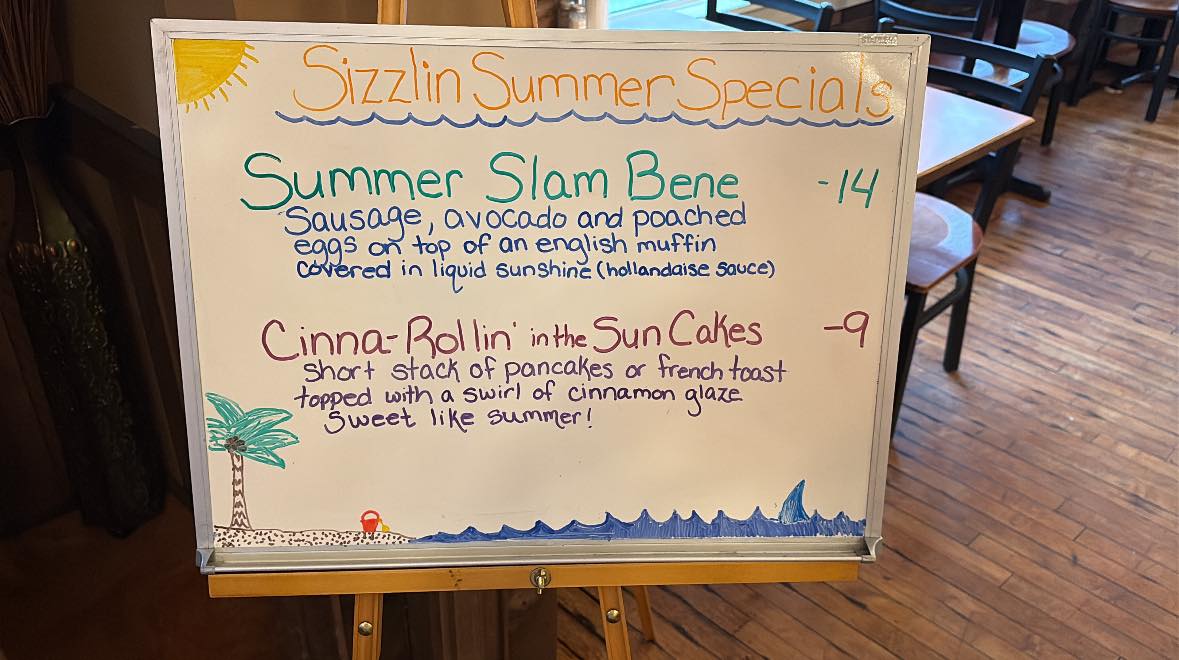 Sizzlin Summer Specials
Summer Slam Bene -14
Sausage, avocado and poached
eggs on top of an english muffin
covered in liquid sunshine (hollandaise sauce)
Cinna-Rollin' in the Sun Cakes -9
short stack of pancakes or french toast
topped with a swirl of cinnamon glaze
Sweet like summer!